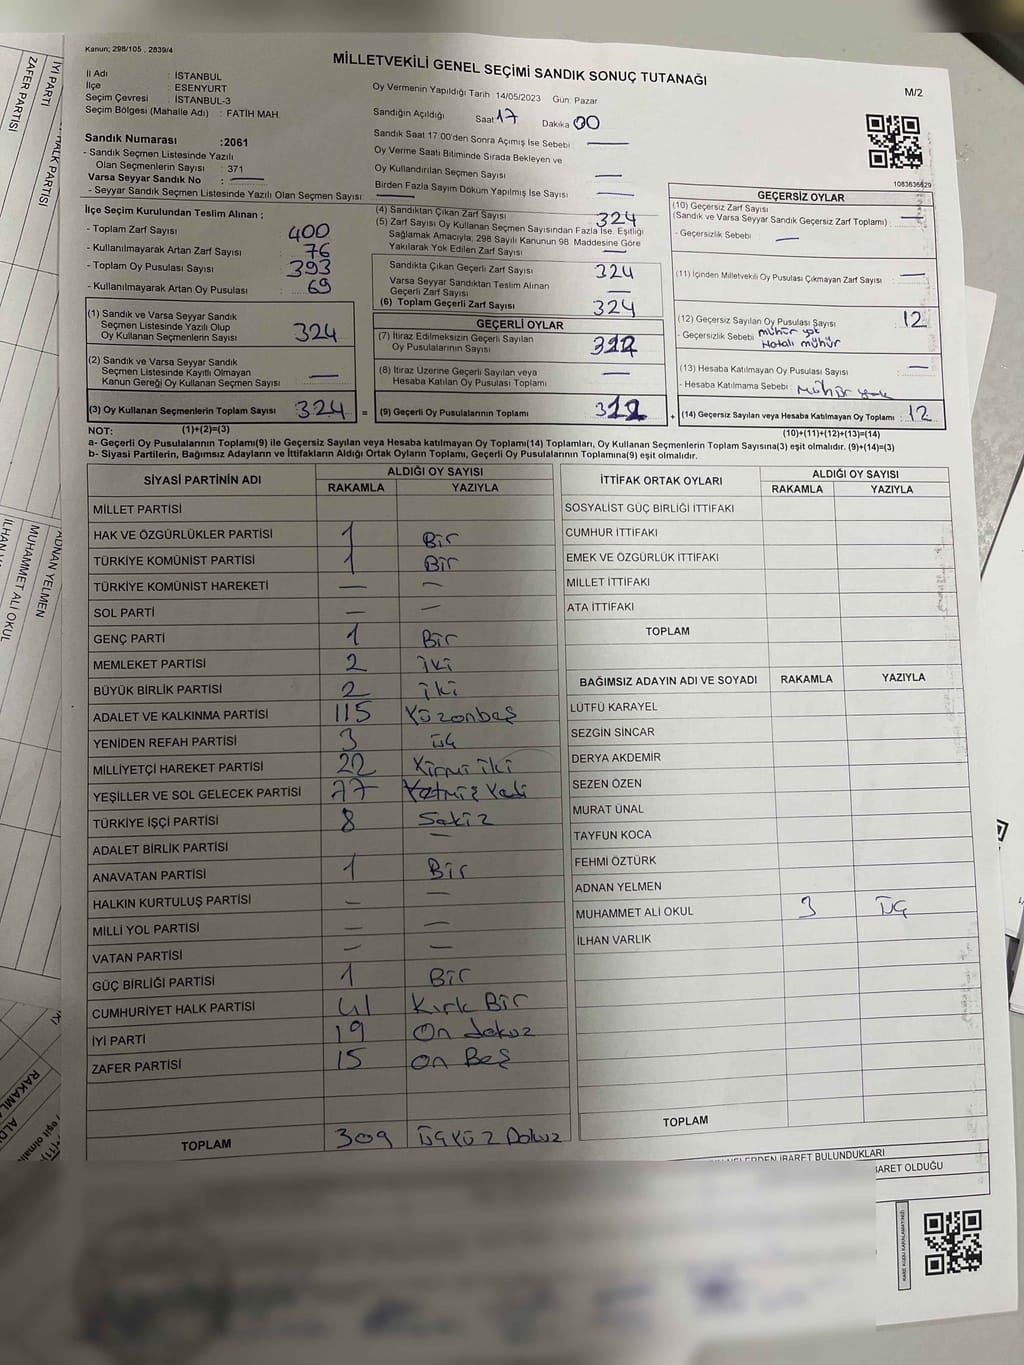 Kanun; 298/105 , 2839/4
MİLLETVEKİLİ GENEL SEÇİMİ SANDIK SONUÇ TUTANAĞI
M/2
İl Adı : İSTANBUL
İlçe : ESENYURT
Seçim Çevresi : İSTANBUL-3
Seçim Bölgesi (Mahalle Adı) : FATİH MAH.
Sandık Numarası :2061
- Sandık Seçmen Listesinde Yazılı
Olan Seçmenlerin Sayısı : 371
Varsa Seyyar Sandık No : —
- Seyyar Sandık Seçmen Listesinde Yazılı Olan Seçmen Sayısı: —
Oy Vermenin Yapıldığı Tarih :14/05/2023 Gün: Pazar
Sandığın Açıldığı Saat 17 Dakika 00
Sandık Saat 17:00'den Sonra Açımış İse Sebebi —
Oy Verme Saati Bitiminde Sırada Bekleyen ve
Oy Kullandırılan Seçmen Sayısı —
Birden Fazla Sayım Döküm Yapılmış İse Sayısı —
1083636629
İlçe Seçim Kurulundan Teslim Alınan ;
- Toplam Zarf Sayısı : 400
- Kullanılmayarak Artan Zarf Sayısı : 76
- Toplam Oy Pusulası Sayısı : 393
- Kullanılmayarak Artan Oy Pusulası : 69
(1) Sandık ve Varsa Seyyar Sandık
Seçmen Listesinde Yazılı Olup
Oy Kullanan Seçmenlerin Sayısı : 324
(2) Sandık ve Varsa Seyyar Sandık
Seçmen Listesinde Kayıtlı Olmayan
Kanun Gereği Oy Kullanan Seçmen Sayısı : —
(3) Oy Kullanan Seçmenlerin Toplam Sayısı : 324 =
(4) Sandıktan Çıkan Zarf Sayısı 324
(5) Zarf Sayısı Oy Kullanan Seçmen Sayısından Fazla İse. Eşitliği
Sağlamak Amacıyla; 298 Sayılı Kanunun 98. Maddesine Göre
Yakılarak Yok Edilen Zarf Sayısı —
Sandıkta Çıkan Geçerli Zarf Sayısı 324
Varsa Seyyar Sandıktan Teslim Alınan
Geçerli Zarf Sayısı —
(6) Toplam Geçerli Zarf Sayısı 324
GEÇERLİ OYLAR
(7) İtiraz Edilmeksizin Geçerli Sayılan
Oy Pusulalarının Sayısı : 312
(8) İtiraz Üzerine Geçerli Sayılan veya
Hesaba Katılan Oy Pusulası Toplamı : —
(9) Geçerli Oy Pusulalarının Toplamı : 312 +
GEÇERSİZ OYLAR
(10) Geçersiz Zarf Sayısı
(Sandık ve Varsa Seyyar Sandık Geçersiz Zarf Toplamı) : —
- Geçersizlik Sebebi : —
(11) İçinden Milletvekili Oy Pusulası Çıkmayan Zarf Sayısı : —
(12) Geçersiz Sayılan Oy Pusulası Sayısı : 12
- Geçersizlik Sebebi mühür yok
Hatalı mühür
(13) Hesaba Katılmayan Oy Pusulası Sayısı : —
- Hesaba Katılmama Sebebi : Mühür yok
(14) Geçersiz Sayılan veya Hesaba Katılmayan Oy Toplamı : 12
NOT: (1)+(2)=(3)
(10)+(11)+(12)+(13)=(14)
a- Geçerli Oy Pusulalarının Toplamı(9) ile Geçersiz Sayılan veya Hesaba katılmayan Oy Toplamı(14) Toplamları, Oy Kullanan Seçmenlerin Toplam Sayısına(3) eşit olmalıdır. (9)+(14)=(3)
b- Siyasi Partilerin, Bağımsız Adayların ve İttifakların Aldığı Ortak Oyların Toplamı, Geçerli Oy Pusulalarının Toplamına(9) eşit olmalıdır.
SİYASİ PARTİNİN ADI ALDIĞI OY SAYISI
RAKAMLA YAZIYLA
MİLLET PARTİSİ
HAK VE ÖZGÜRLÜKLER PARTİSİ 1 Bir
TÜRKİYE KOMÜNİST PARTİSİ 1 Bir
TÜRKİYE KOMÜNİST HAREKETİ — —
SOL PARTİ — —
GENÇ PARTİ 1 Bir
MEMLEKET PARTİSİ 2 iki
BÜYÜK BİRLİK PARTİSİ 2 iki
ADALET VE KALKINMA PARTİSİ 115 Yüzonbeş
YENİDEN REFAH PARTİSİ 3 üç
MİLLİYETÇİ HAREKET PARTİSİ 22 Yirmi iki
YEŞİLLER VE SOL GELECEK PARTİSİ 77 Yetmiş Yedi
TÜRKİYE İŞÇİ PARTİSİ 8 Sekiz
ADALET BİRLİK PARTİSİ —
ANAVATAN PARTİSİ 1 Bir
HALKIN KURTULUŞ PARTİSİ — —
MİLLİ YOL PARTİSİ — —
VATAN PARTİSİ — —
GÜÇ BİRLİĞİ PARTİSİ 1 Bir
CUMHURİYET HALK PARTİSİ 41 Kırk Bir
İYİ PARTİ 19 On dokuz
ZAFER PARTİSİ 15 on Beş
TOPLAM 309 üçyüz Dokuz
İTTİFAK ORTAK OYLARI ALDIĞI OY SAYISI
RAKAMLA YAZIYLA
SOSYALİST GÜÇ BİRLİĞİ İTTİFAKI
CUMHUR İTTİFAKI
EMEK VE ÖZGÜRLÜK İTTİFAKI
MİLLET İTTİFAKI
ATA İTTİFAKI
TOPLAM
BAĞIMSIZ ADAYIN ADI VE SOYADI RAKAMLA YAZIYLA
LÜTFÜ KARAYEL
SEZGİN SİNCAR
DERYA AKDEMİR
SEZEN ÖZEN
MURAT ÜNAL
TAYFUN KOCA
FEHMİ ÖZTÜRK
ADNAN YELMEN
MUHAMMET ALİ OKUL 3 üç
İLHAN VARLIK
TOPLAM
İBARET BULUNDUKLARI
OLDUĞU
İYİ PARTİ
ZAFER PARTİSİ
ADNAN YELMEN
MUHAMMET ALİ OKUL